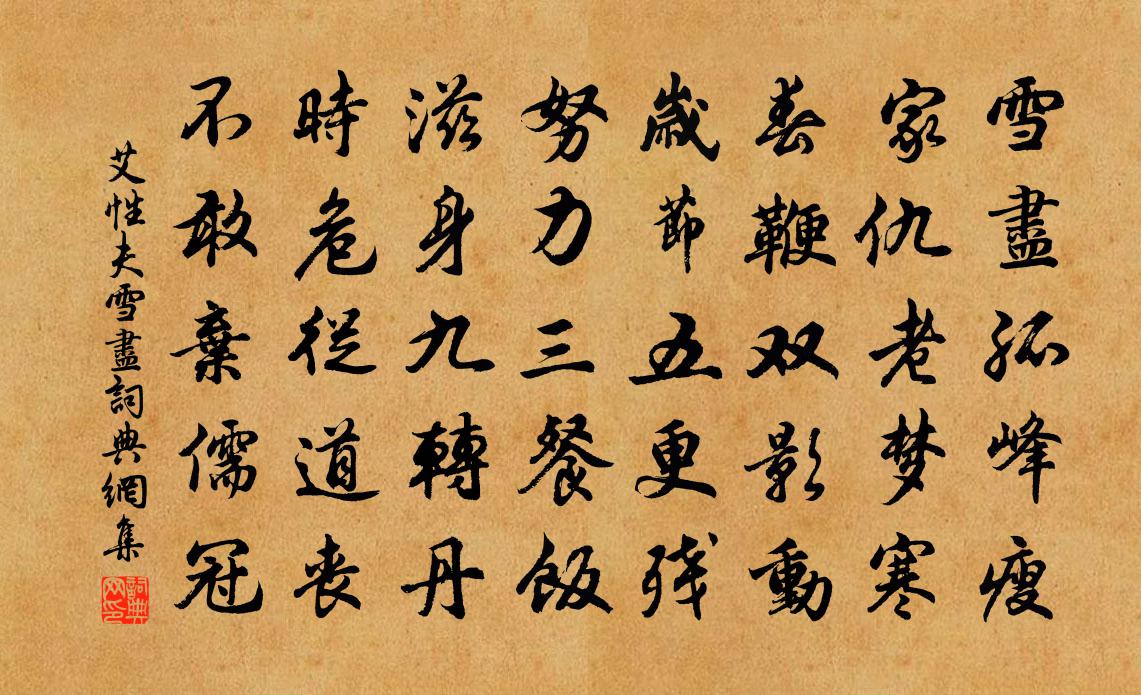 雪盡孤峰瘦
家仇老梦寒
春鞭双影動
歲節五更残
努力三餐飯
滋身九轉丹
時危從道丧
不敢棄儒冠
艾性夫雪盡詞典網集
詞典网印